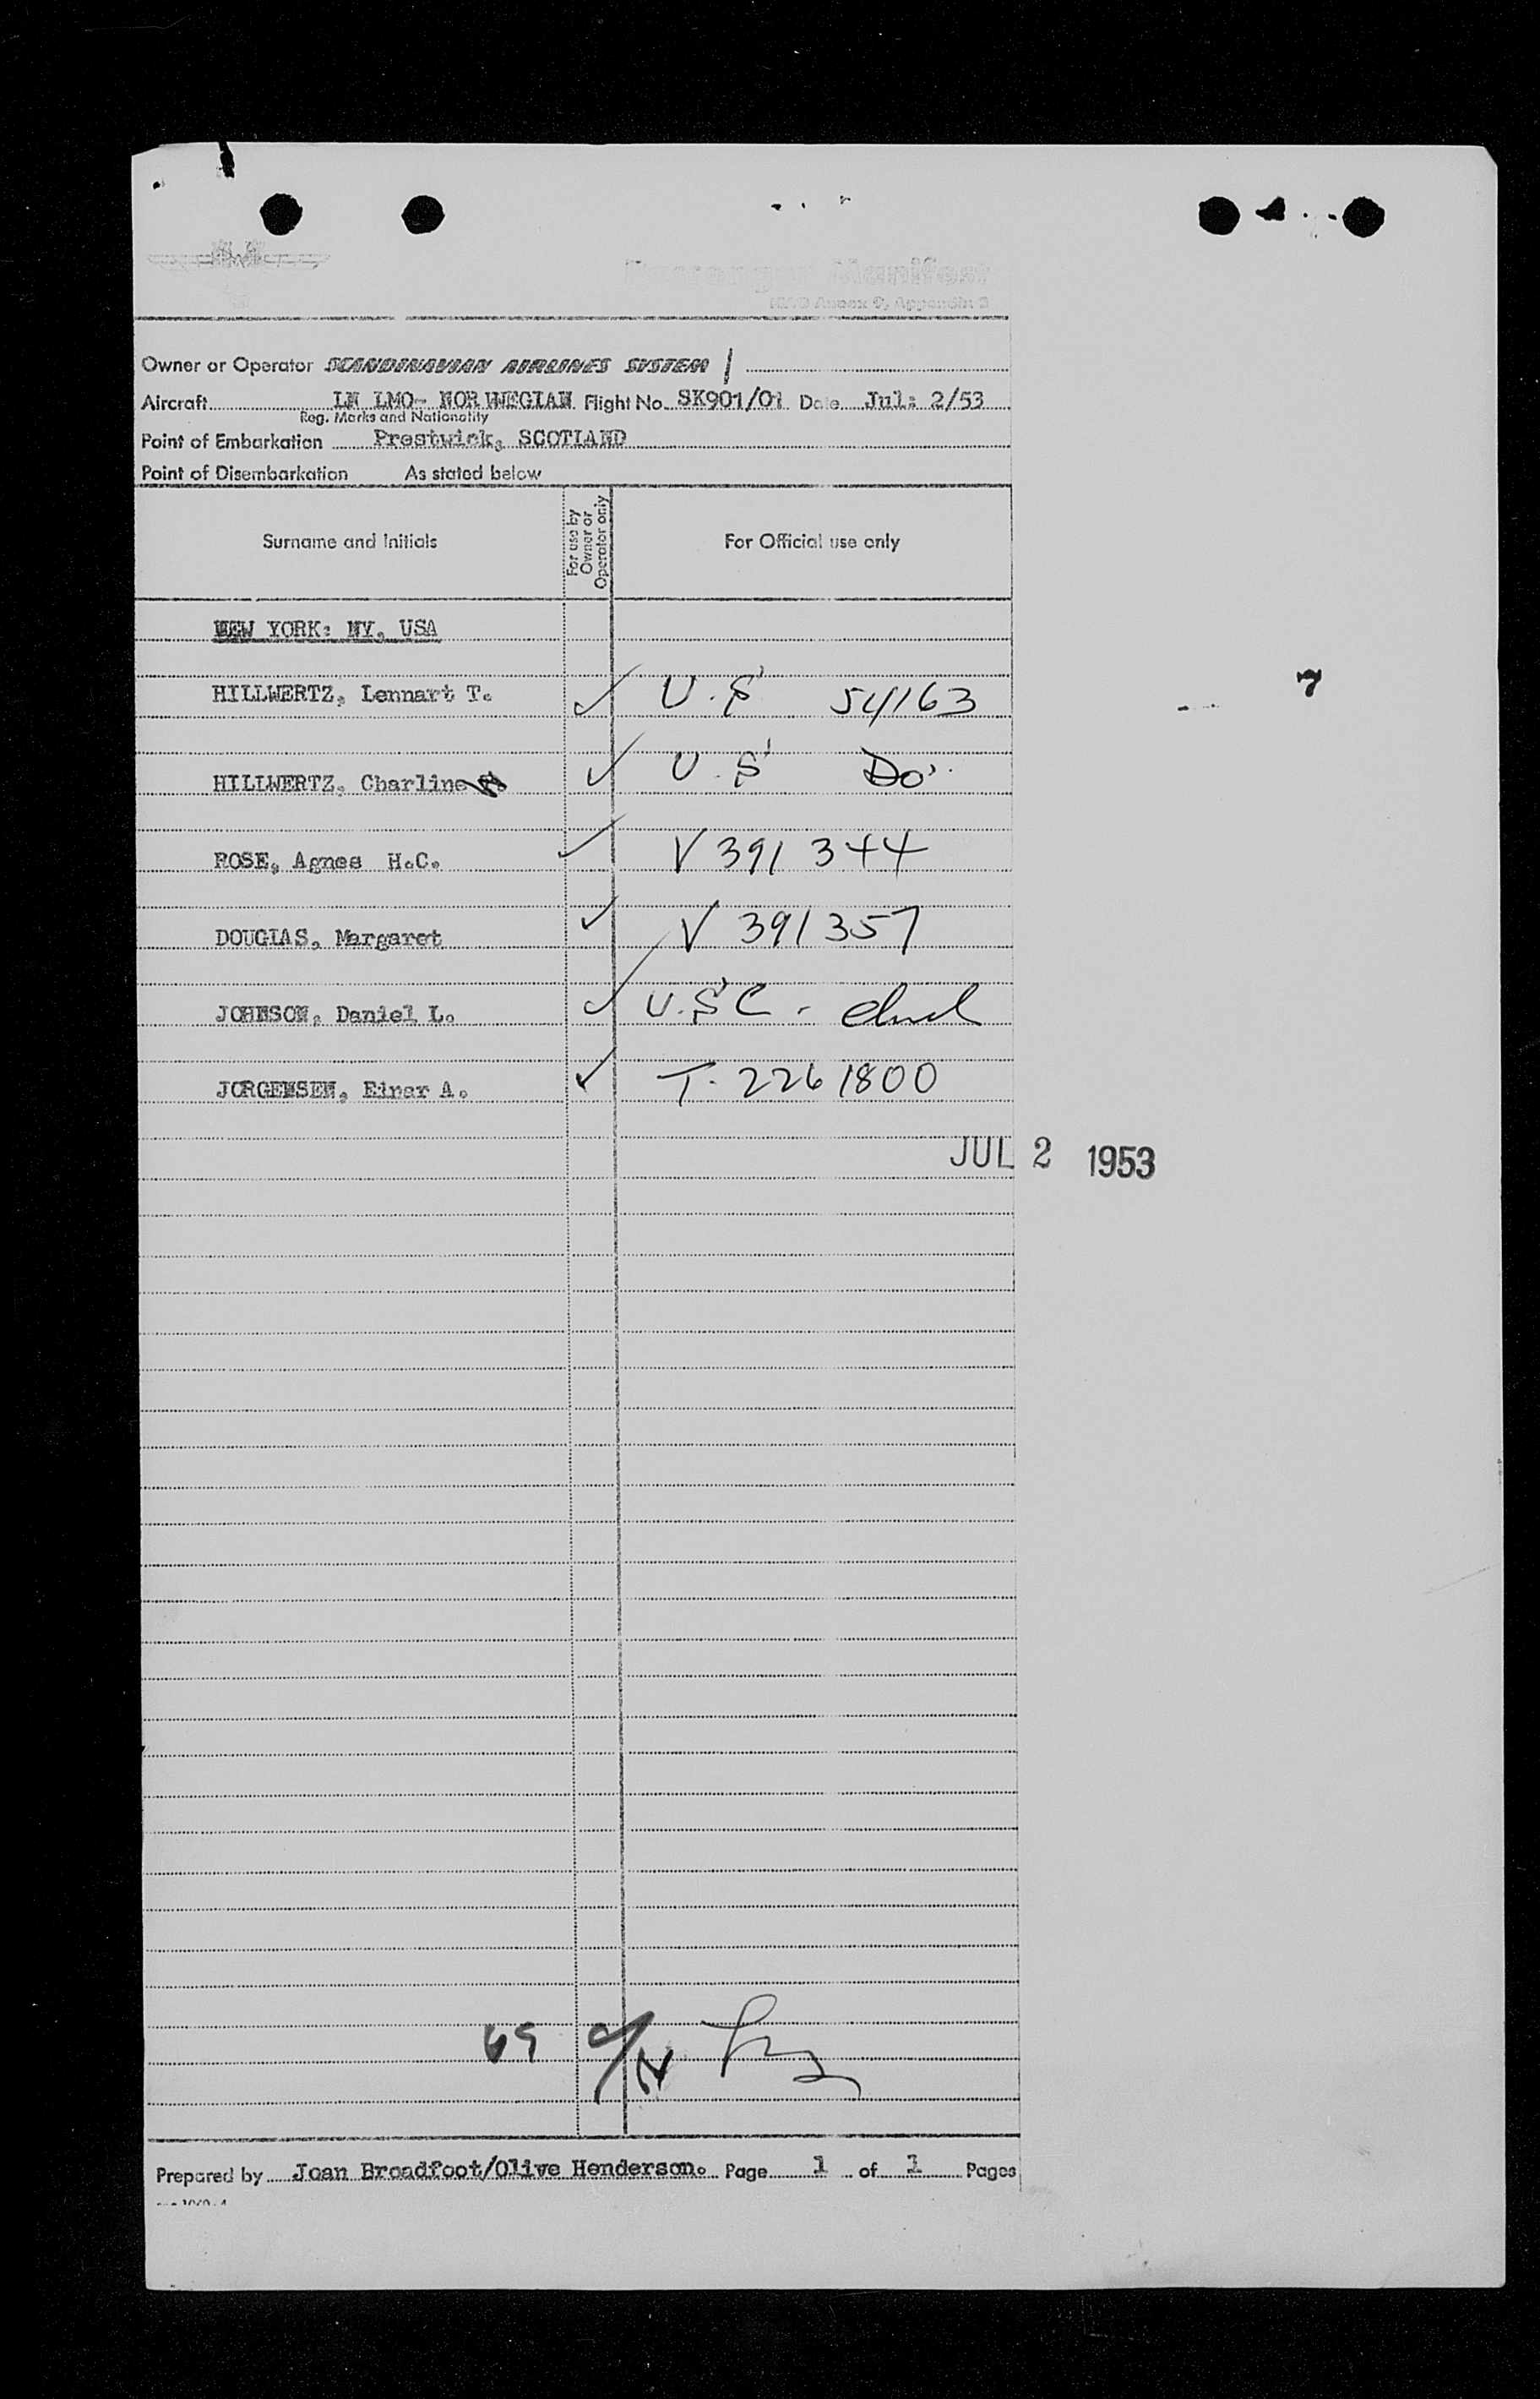 Passenger Manifest
ICAO Annex 9, Appendix 3
Owner or Operator SCANDINAVIAN AIRLINES SYSTEM
Aircraft LN LMO- NORWEGIAN Flight No. SK901/01 Date Jul: 2/53
Reg. Marks and Nationality
Point of Embarkation Prestwick, SCOTLAND
Point of Disembarkation As stated below
Surname and Initials For use by Owner or Operator only For Official use only
NEW YORK: NY. USA
HILLWERTZ, Lennart T. ✓ U.S 54163
7
HILLWERTZ, Charline ✓ U.S Do.
ROSE, Agnes H.C. ✓ V 391 344
DOUGLAS, Margaret ✓ V 391 357
JOHNSON, Daniel L. ✓ U.S C -
JORGENSEN, Einar A. ✓ T. 2261800
JUL 2 1953
69
Prepared by Joan Broadfoot/Olive Henderson. Page 1 of 1 Pages